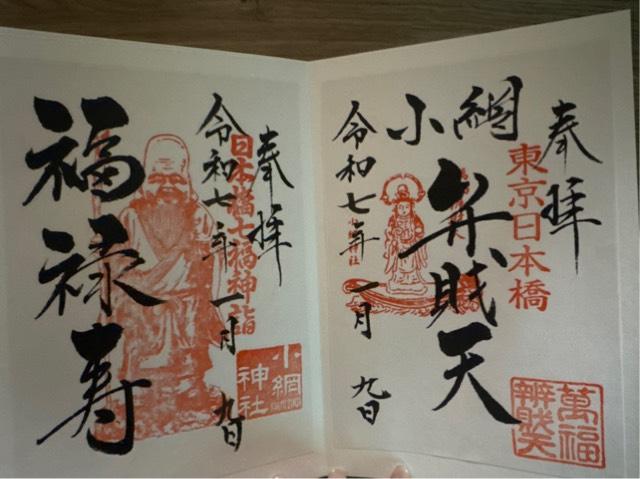 奉拝
東京日本橋
小網
弁賤天
萬福
辨財天
令和七年一月九日
奉拝
日本橋七福神詣
令和七年一月九日
小網
神社
福禄寿